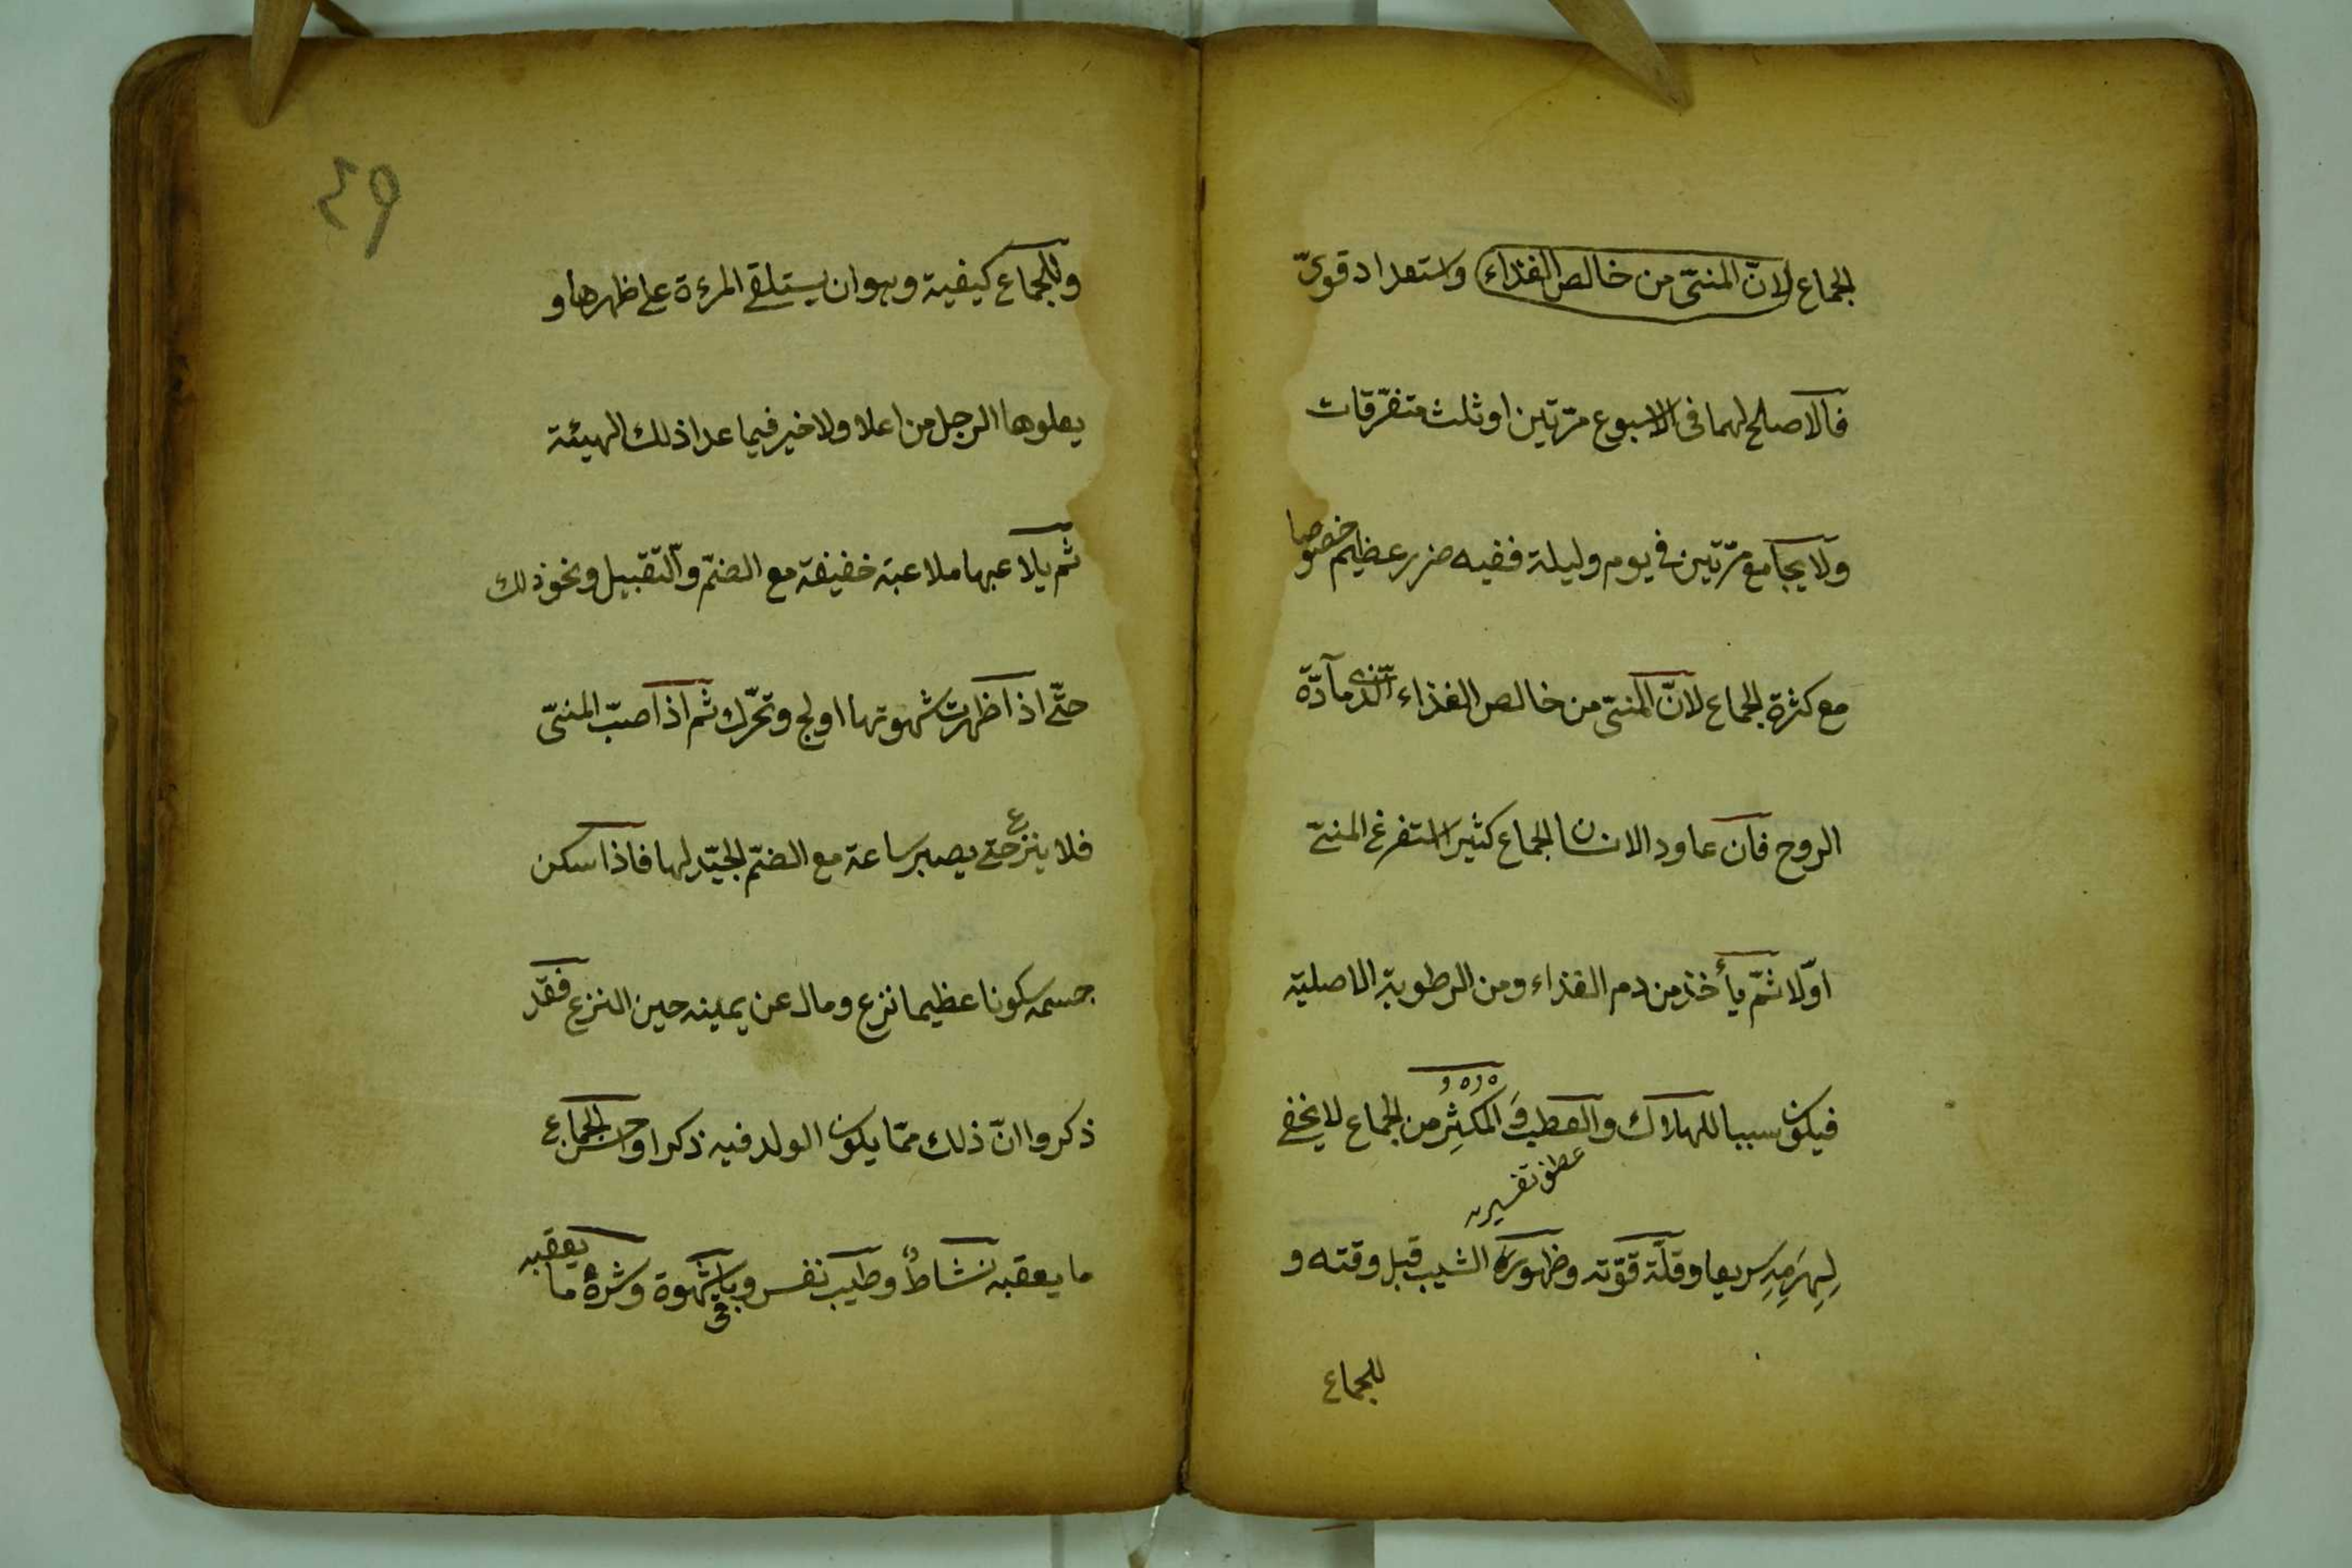 الجماع لانّ المنىّ من خالص الغذاء واستعداد قوىّ
فالاصلح لهما فى الاسبوع مرّتين او ثلث متفرّقات
ولا يجامع مرّتين فى يوم وليلة ففيه ضرر عظيم خصوصا
مع كثرة الجماع لانّ المنىّ من خالص الغذاء الّذى مآدّة
الروح فان عاود الانسان الجماع كثيرا استفرغ المنىّ
اوّلا ثمّ يأخذ من دم الغذاء ومن الرطوبة الاصلية
فيكون سببا للهلاك والعطب وَالمكثِر من الجماع لا يخفى
عطف تفسير
لِهِرَمِهِ سريعا وقلّة قوّته وظهور الشيب قبل وقته و
للجماع
٤٩
وللجماع كيفية وهو ان يستلقى المرءة على ظهرها و
يعلوها الرجل من اعلا ولا خير فيما عدا ذلك الهيئة
ثم يلاعبها ملاعبة خفيفة مع الضمّ والتّقبيل ونحو ذلك
حتّى اذا ظهرت شهوتها اولج وتحرّك ثم اذا صبّ المنىّ
فلا ينزع حتى يصبر ساعة مع الضمّ الجيّد لها فاذا سكن
جسمه سكونا عظيما نزع ومال عن يمينه حين النزع فقد
ذكروا انّ ذلك ممّا يكون الولد فيه ذكرا وحسن الجماع
ما يعقبه نشاطٌ وطيب نفس وباقى شهوة وشرهُ ما يعقبه